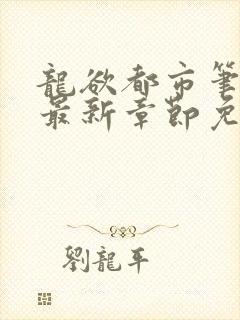 龍欲都市筆
最新章節免
劉龍平